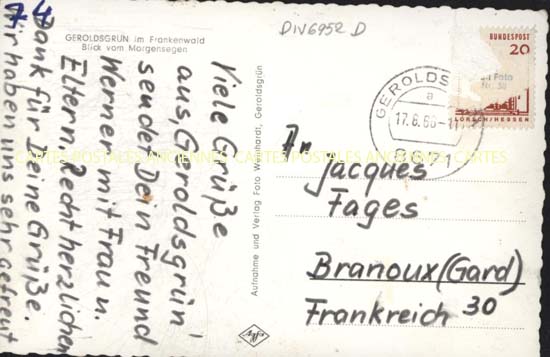 GEROLDSGRÜN im Frankenwald
Blick vom Morgensegen
Viele Grüße
aus "Geroldsgrün"
sendet Dein Freund
Werner mit Frau u.
Eltern. Recht herzlichen
Dank für Deine Grüße.
Wir haben uns sehr gefreut
Aufnahme und Verlag Foto Weinhardt, Geroldsgrün
Agfa
DIV6952 D
BUNDESPOST
20
LORSCH/HESSEN
GEROLDS
a
17.8.66-1
An
Jacques
Fages
Branoux (Gard)
Frankreich 30
CARTES POSTALES ANCIENNES CARTES POSTALES ANCIENNES CARTES